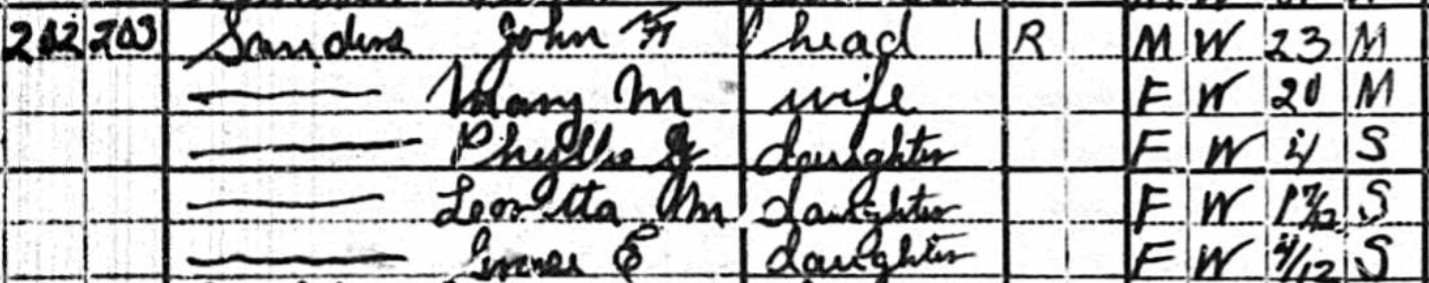 202 203 Sanders John F head 1 R M W 23 M
Mary M wife F W 20 M
Phyllis J daughter F W 4 S
Loretta M daughter F W S
E daughter F W 4/12 S